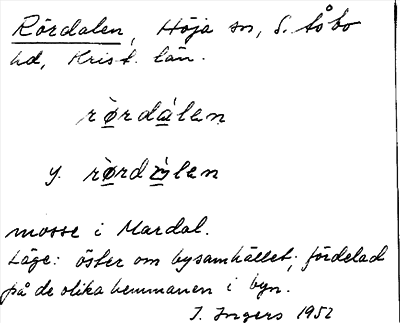 Rördalen, Höja sn, S. Åsbo
hd, Krist. län.
rø̀rdálen
y. rø̀rdằlen
mosse i Mardal.
Läge: öster om bysamhället; fördelad
på de olika hemmanen i byn.
I. Ingers 1952